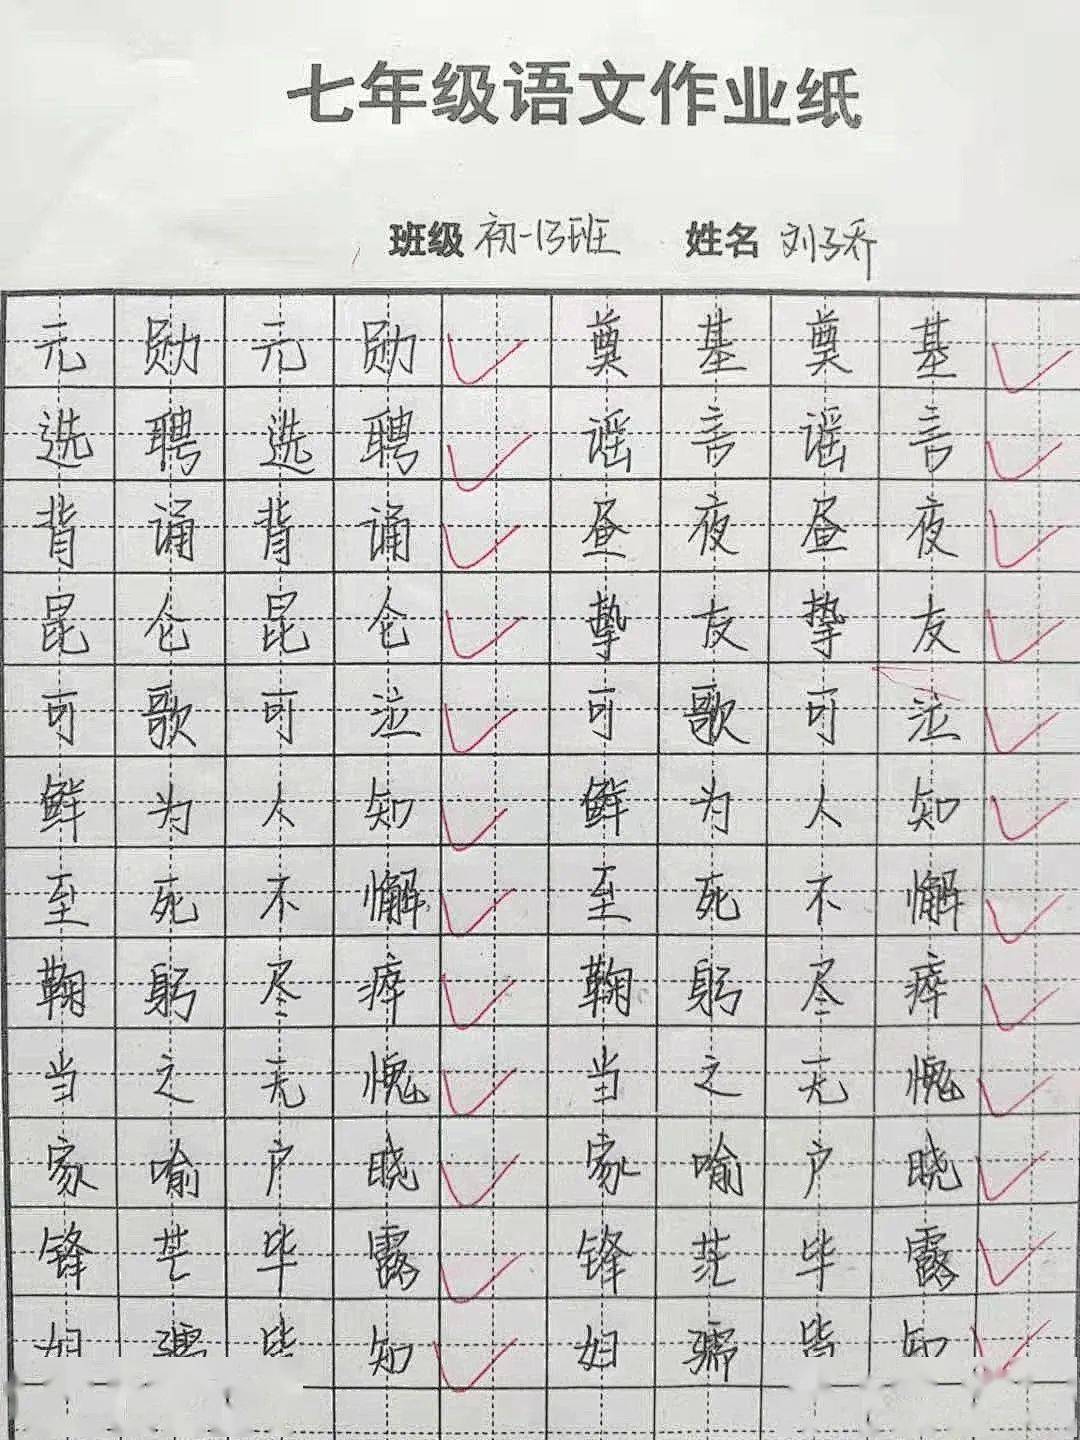 七年级语文作业纸
班级 初一13班 姓名 刘子乔
元勋元勋 奠基奠基
选聘选聘 谣言谣言
背诵背诵 昼夜昼夜
昆仑昆仑 挚友挚友
可歌可泣 可歌可泣
鲜为人知 鲜为人知
至死不懈 至死不懈
鞠躬尽瘁 鞠躬尽瘁
当之无愧 当之无愧
家喻户晓 家喻户晓
锋芒毕露 锋芒毕露
妇孺皆知 妇孺皆知